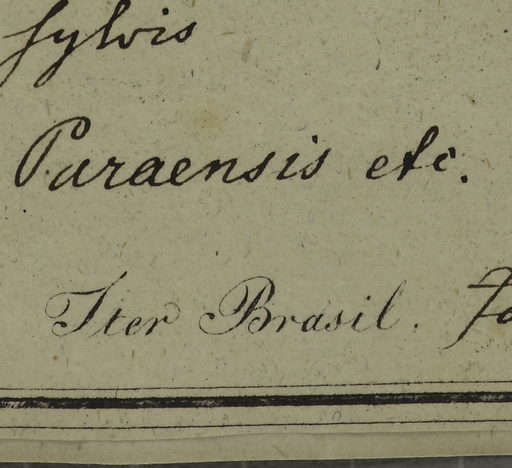 sylvis
Paraensis etc.
Iter Brasil.